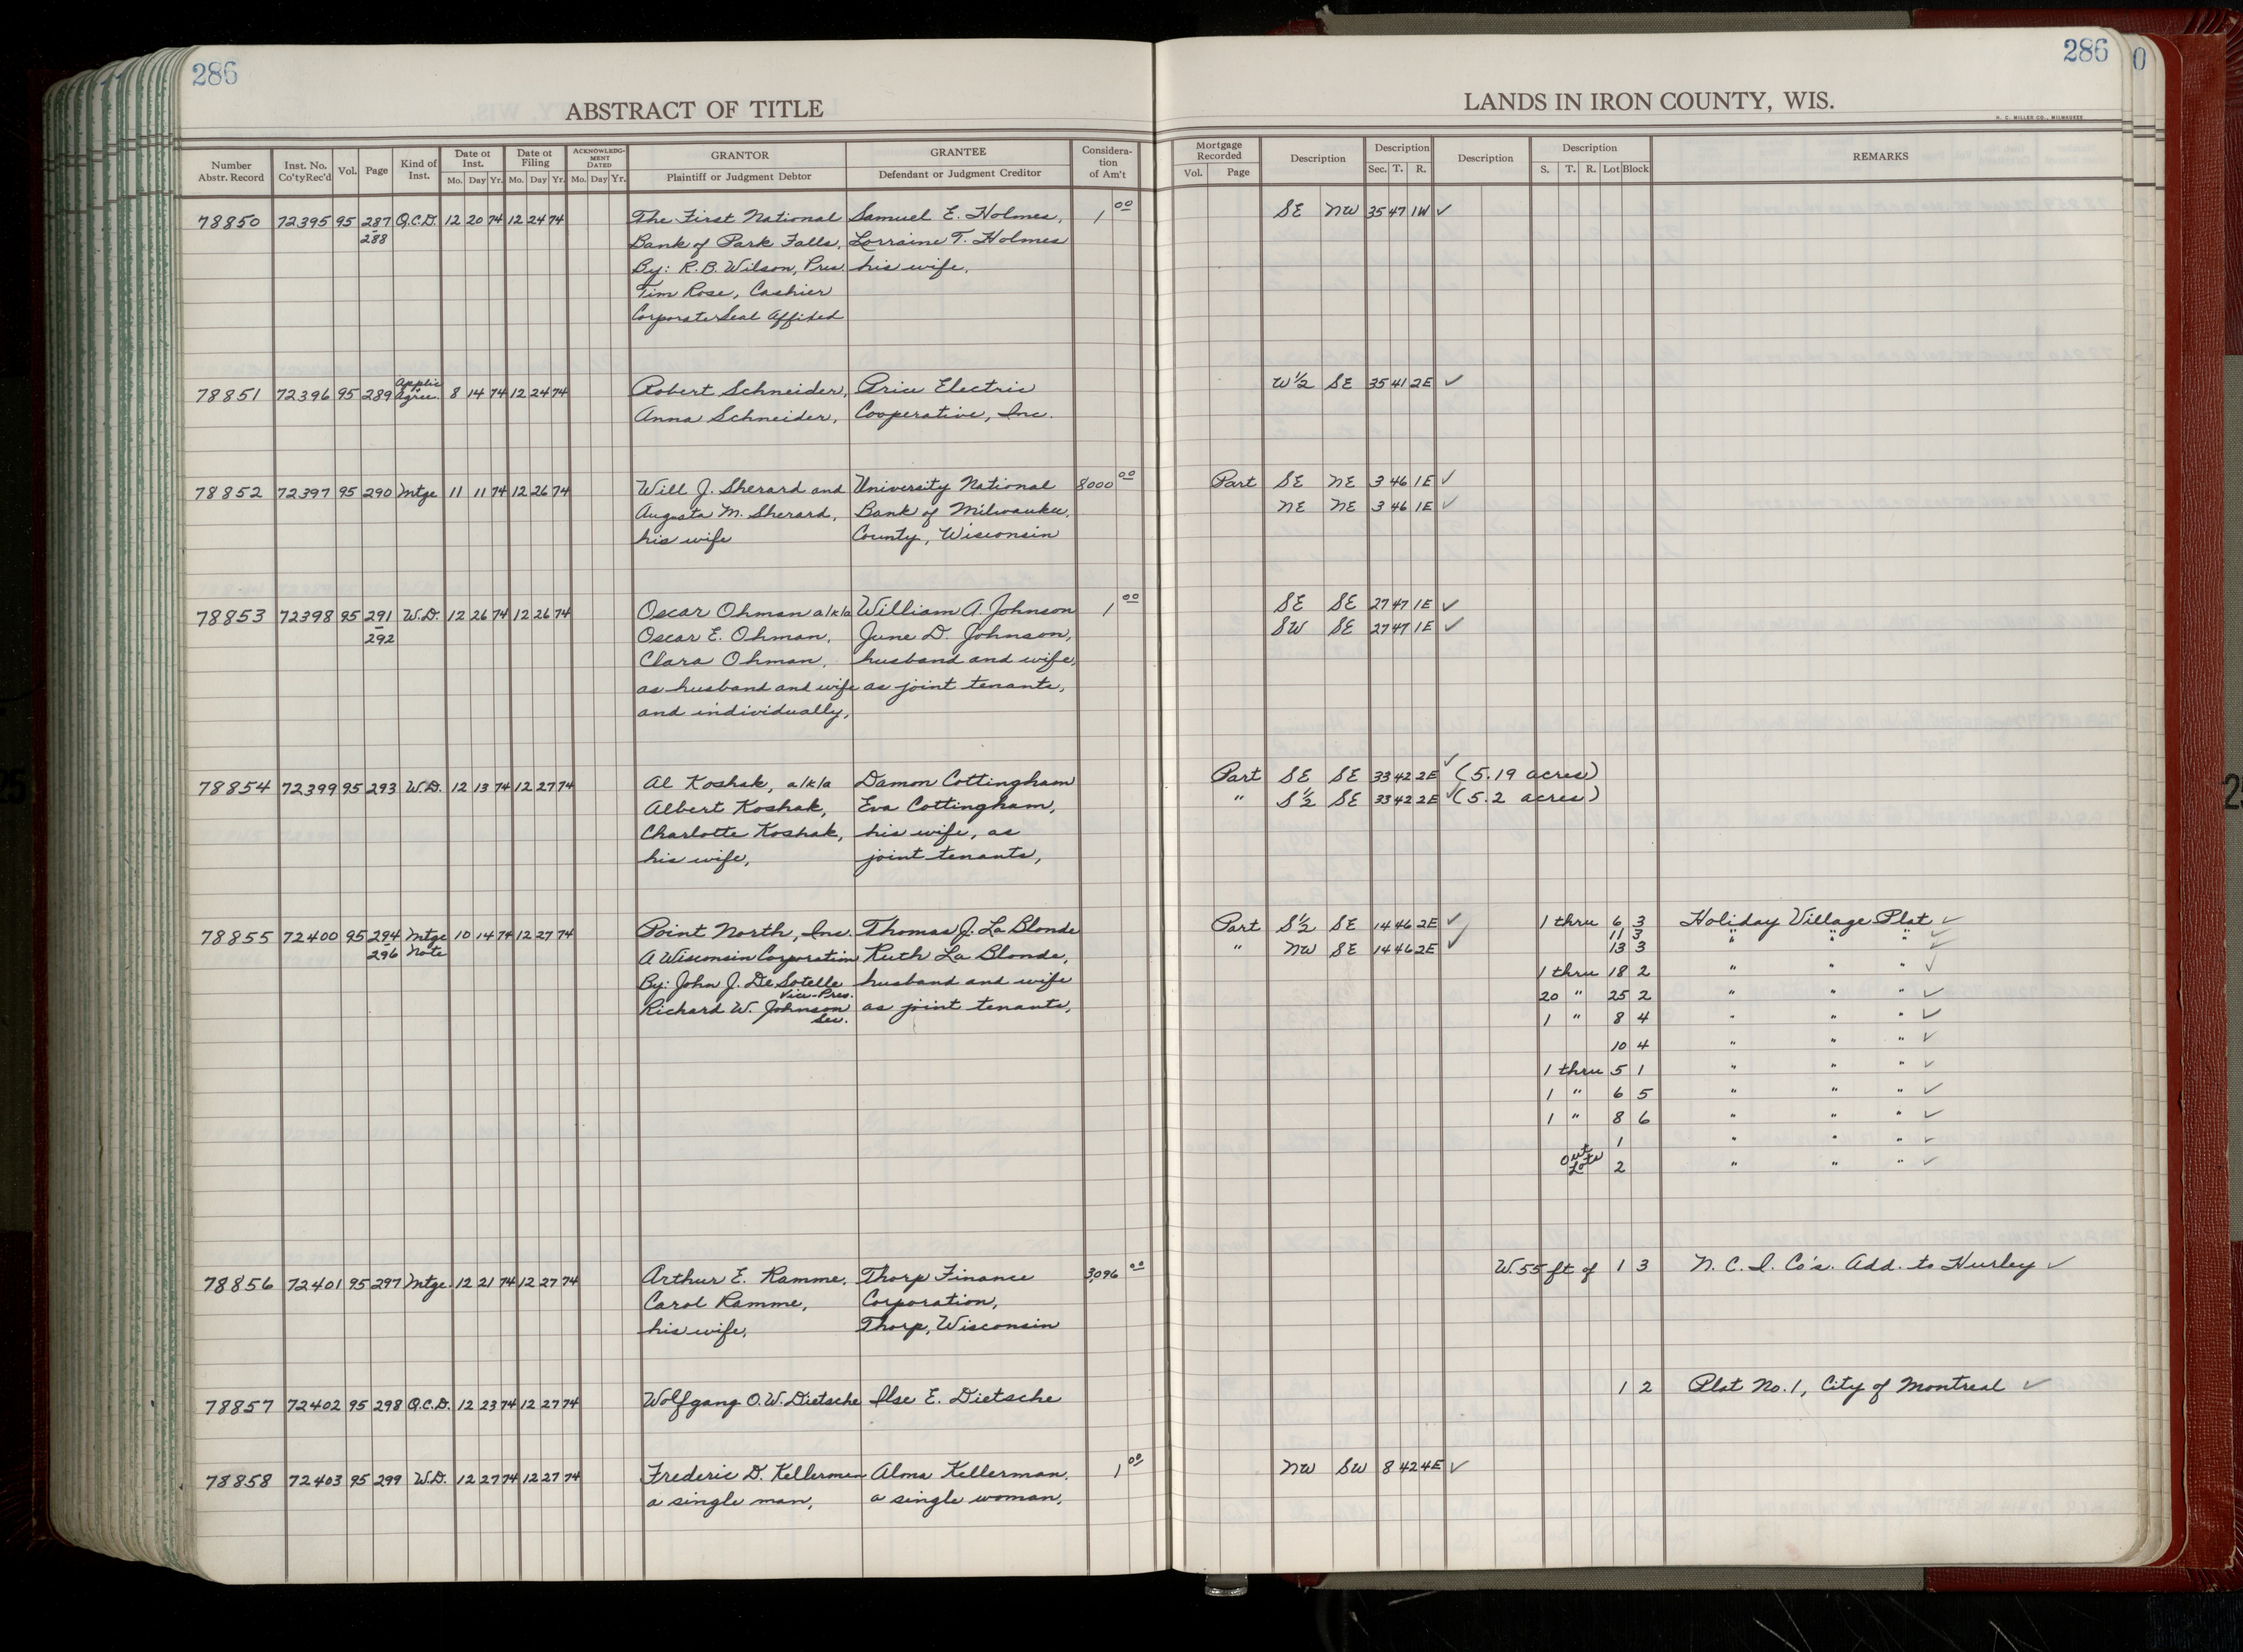 286
286
0
ABSTRACT OF TITLE
LANDS IN IRON COUNTY, WIS.
H. C. MILLER CO., MILWAUKEE
Number Abstr. Record | Inst. No. Co'ty Rec'd | Vol. | Page | Kind of Inst. | Date of Inst. Mo. Day Yr. | Date of Filing Mo. Day Yr. | ACKNOWLEDGMENT DATED Mo. Day Yr. | GRANTOR Plaintiff or Judgment Debtor | GRANTEE Defendant or Judgment Creditor | Consideration of Am't | Mortgage Recorded Vol. Page | Description | Description Sec. T. R. | Description | Description S. T. R. Lot Block | REMARKS
78850 72395 95 287 Q.C.D. 12 20 74 12 24 74 The First National Samuel E. Holmes, 1 00 SE NW 35 47 1W ✓
288 Bank of Park Falls, Lorraine T. Holmes
By: R.B. Wilson, Pres. his wife,
Tim Rose, Cashier
Corporate Seal Affixed
78851 72396 95 289 Applic & Agree. 8 14 74 12 24 74 Robert Schneider, Price Electric W½ SE 35 41 2E ✓
Anna Schneider, Cooperative, Inc.
78852 72397 95 290 Mtge 11 11 74 12 26 74 Will J. Sherard and University National 8000 00 Part SE NE 3 46 1E ✓
Augusta M. Sherard, Bank of Milwaukee, NE NE 3 46 1E ✓
his wife County, Wisconsin
78853 72398 95 291 W.D. 12 26 74 12 26 74 Oscar Ohman a/k/a William A. Johnson 1 00 SE SE 27 47 1E ✓
292 Oscar E. Ohman, June D. Johnson, SW SE 27 47 1E ✓
Clara Ohman, husband and wife,
as husband and wife as joint tenants,
and individually,
78854 72399 95 293 W.D. 12 13 74 12 27 74 Al Koshak, a/k/a Damon Cottingham Part SE SE 33 42 2E ✓ (5.19 acres)
Albert Koshak, Eva Cottingham, " S½ SE 33 42 2E ✓ (5.2 acres)
Charlotte Koshak, his wife, as
his wife, joint tenants,
78855 72400 95 294 Mtge 10 14 74 12 27 74 Point North, Inc. Thomas J. La Blonde Part S½ SE 14 46 2E ✓ 1 thru 6 3 Holiday Village Plat ✓
11 3 " " " ✓
296 Note A Wisconsin Corporation Ruth La Blonde, " NW SE 14 46 2E ✓ 13 3 " " " ✓
By: John J. DeSotelle husband and wife 1 thru 18 2 " " " ✓
Vice-Pres. 20 " 25 2 " " " ✓
Richard W. Johnson as joint tenants, 1 " 8 4 " " " ✓
Sec.
10 4 " " " ✓
1 thru 5 1 " " " ✓
1 " 6 5 " " " ✓
1 " 8 6 " " " ✓
1 " " " ✓
Out Lots 2 " " " ✓
78856 72401 95 297 Mtge. 12 21 74 12 27 74 Arthur E. Ramme, Thorp Finance 3,096 00 W. 55 ft of 1 3 N. C. I. Co's. Add. to Hurley ✓
Carol Ramme, Corporation,
his wife, Thorp, Wisconsin
78857 72402 95 298 Q.C.D. 12 23 74 12 27 74 Wolfgang O.W. Dietsche Ilse E. Dietsche 1 2 Plat No. 1, City of Montreal ✓
78858 72403 95 299 W.D. 12 27 74 12 27 74 Frederic D. Kellerman Alma Kellerman, 1 00 NW SW 8 42 4E ✓
a single man, a single woman,